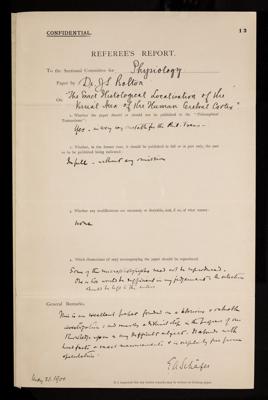 CONFIDENTIAL.
13
REFEREE'S REPORT.
To the Sectional Committee for Physiology
Paper by Dr. J. S. Bolton
On "The Exact Histological Localisation of the
Visual Area of the Human Cerebral Cortex"
1. Whether the paper should or should not be published in the "Philosophical
Transactions":
Yes - in every way suitable for the Phil. Trans.
2. Whether, in the former case, it should be published in full or in part only, the part
or to be published being indicated:
In full - without any omission
3. Whether any modifications are necessary or desirable, and, if so, of what nature:
None
4. Which illustrations (if any) accompanying the paper should be reproduced:
Some of the microphotographs need not be reproduced.
One or two would be sufficient in my judgment - the selection
should be left to the author
General Remarks.
This is an excellent paper founded on a laborious & valuable
investigation & marks a distinct step in the progress of our
knowledge upon a very difficult subject. It abounds with
facts & exact measurements & is free from
speculation
E A Schäfer
May 22. 1900